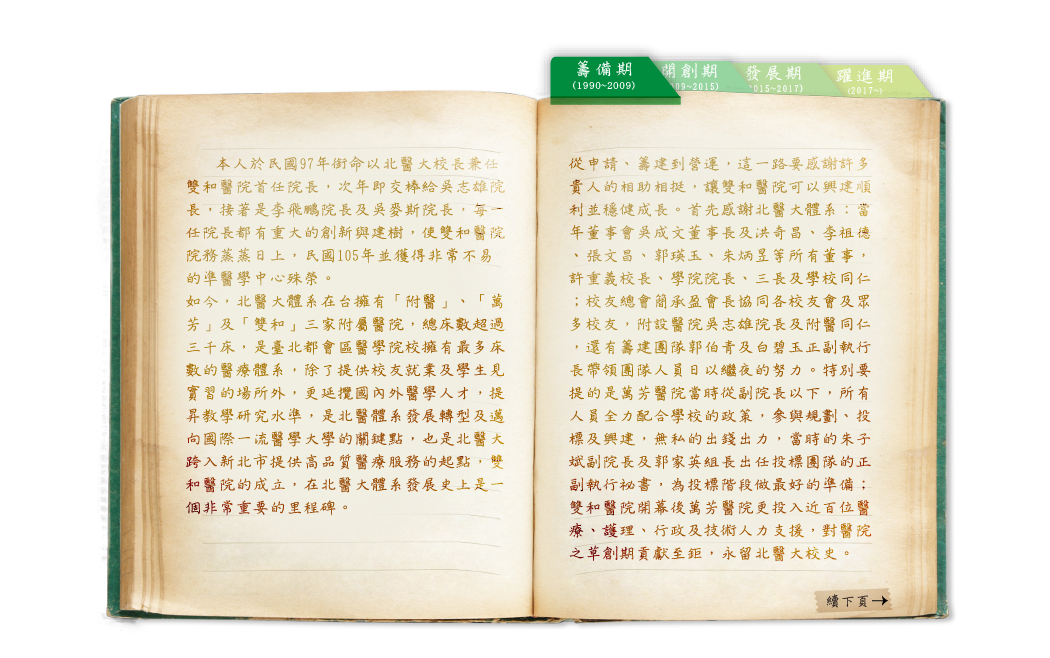 籌備期
(1990~2009)
開創期
09~2015)
發展期
015~2017)
躍進期
(2017~)
本人於民國97年銜命以北醫大校長兼任
雙和醫院首任院長，次年即交棒給吳志雄院
長，接著是李飛鵬院長及吳麥斯院長，每一
任院長都有重大的創新與建樹，使雙和醫院
院務蒸蒸日上，民國105年並獲得非常不易
的準醫學中心殊榮。
如今，北醫大體系在台擁有「附醫」、「萬
芳」及「雙和」三家附屬醫院，總床數超過
三千床，是臺北都會區醫學院校擁有最多床
數的醫療體系，除了提供校友就業及學生見
實習的場所外，更延攬國內外醫學人才，提
昇教學研究水準，是北醫體系發展轉型及邁
向國際一流醫學大學的關鍵點，也是北醫大
跨入新北市提供高品質醫療服務的起點，雙
和醫院的成立，在北醫大體系發展史上是一
個非常重要的里程碑。
從申請、籌建到營運，這一路要感謝許多
貴人的相助相挺，讓雙和醫院可以興建順
利並穩健成長。首先感謝北醫大體系：當
年董事會吳成文董事長及洪奇昌、李祖德
、張文昌、郭瑛玉、朱炳昱等所有董事，
許重義校長、學院院長、三長及學校同仁
；校友總會簡承盈會長協同各校友會及眾
多校友，附設醫院吳志雄院長及附醫同仁
，還有籌建團隊郭伯青及白碧玉正副執行
長帶領團隊人員日以繼夜的努力。特別要
提的是萬芳醫院當時從副院長以下，所有
人員全力配合學校的政策，參與規劃、投
標及興建，無私的出錢出力，當時的朱子
斌副院長及郭家英組長出任投標團隊的正
副執行祕書，為投標階段做最好的準備；
雙和醫院開幕後萬芳醫院更投入近百位醫
療、護理、行政及技術人力支援，對醫院
之草創期貢獻至鉅，永留北醫大校史。
續下頁→